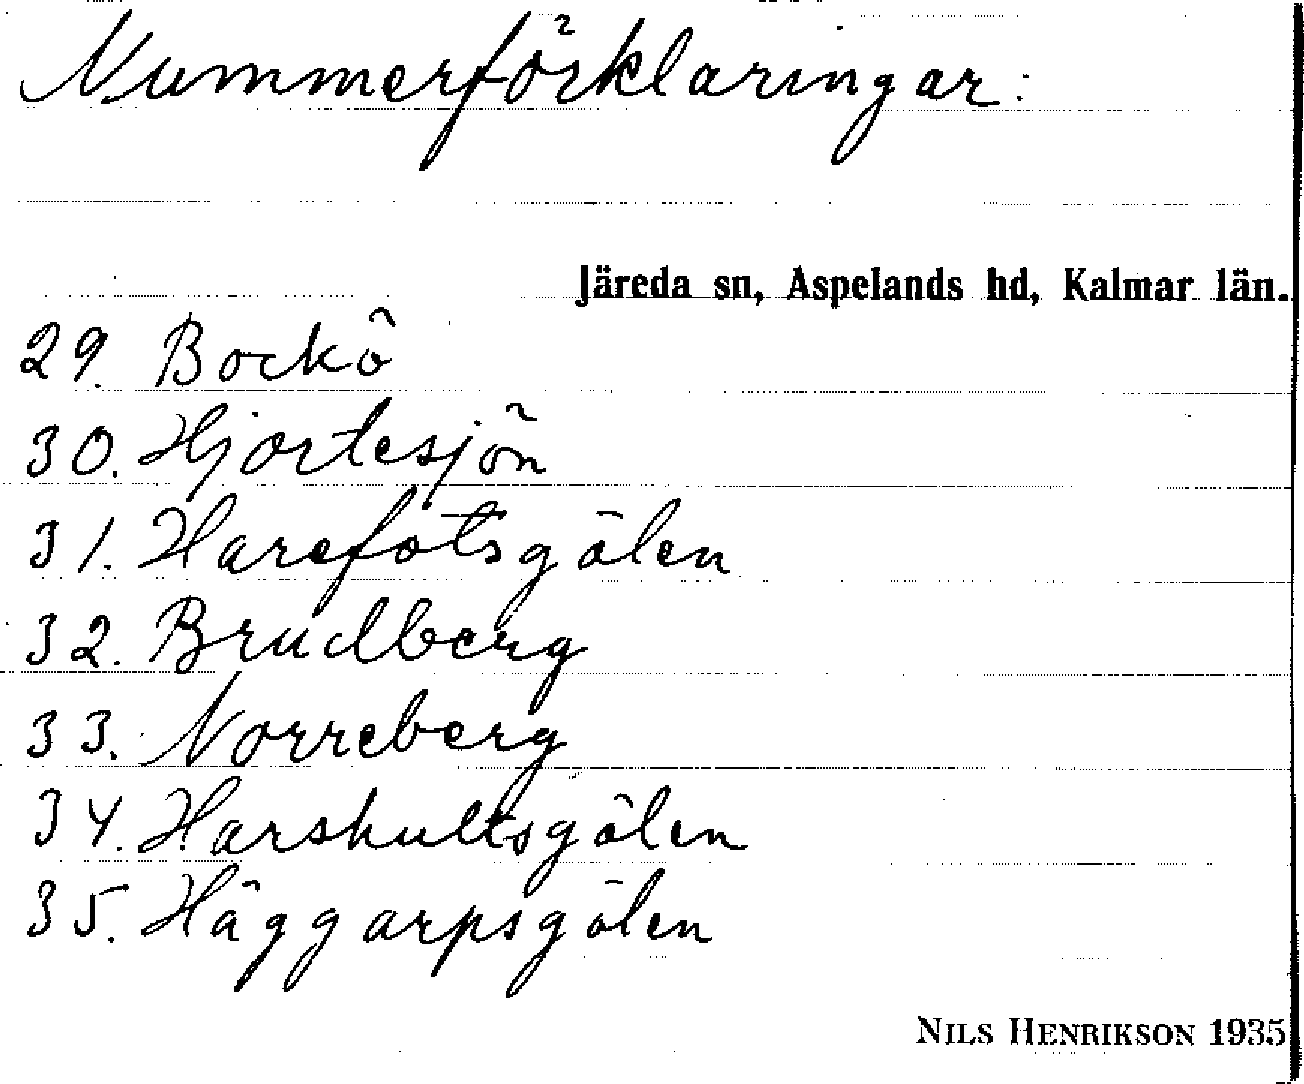 Nummerförklaringar:
Järeda sn, Aspelands hd, Kalmar län.
29. Bockö
30. Hjortesjön
31. Harefotsgölen
32. Brudberg
33. Norreberg
34. Harshultsgölen
35. Häggarpsgölen
NILS HENRIKSON 1935